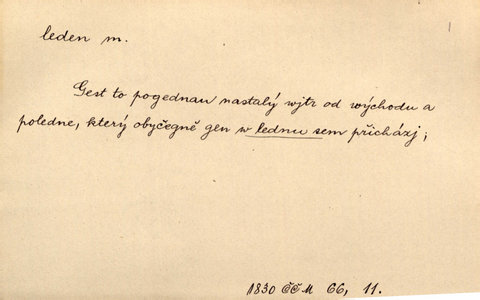 leden m.
Gest to pogednau nastalý wjtr od wýchodu a
poledne, který obyčegně gen w lednu sem přicházj;
1830 ČČM 66, 11.